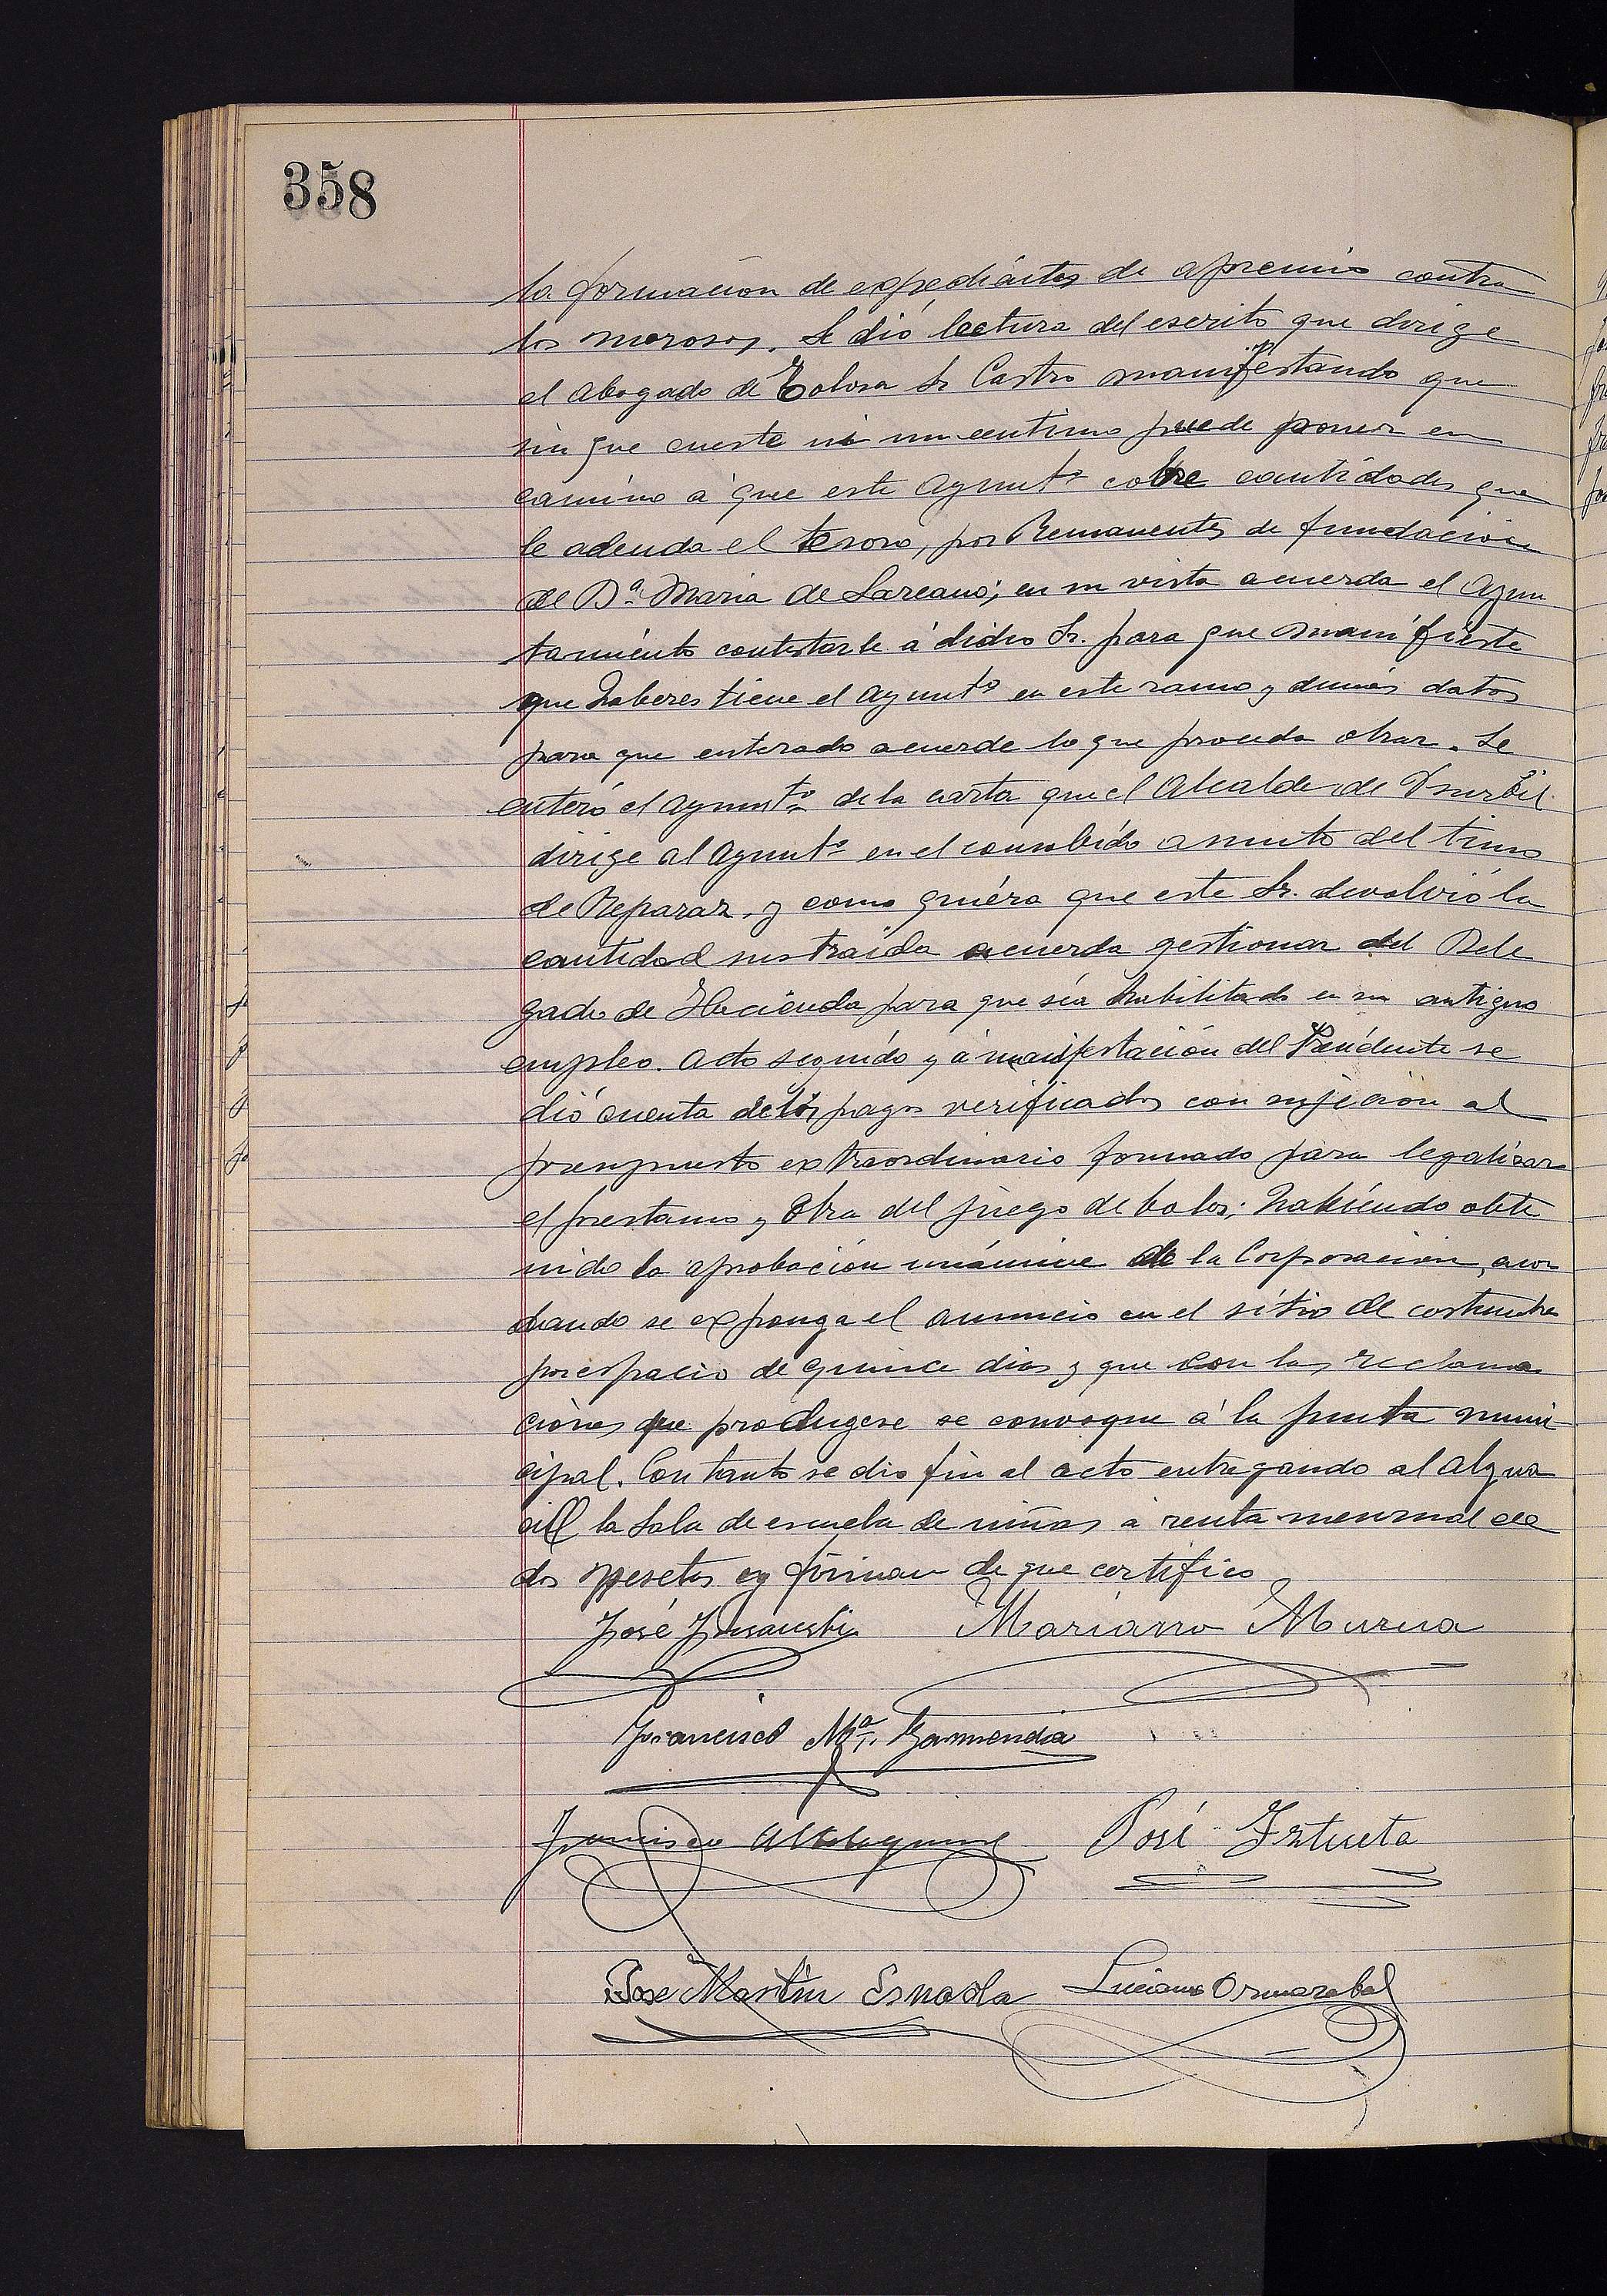 358
la formación de expediéntes de apremio contra
los morosos. Se dió lectura del escrito que dirige
el abogado de Tolosa Sr Castro manifestando que
sin que cueste ni un centimo puede poner en
camino á que este Ayuntº cobre cantidades que
le adeuda el tesoro, por Remanentes de fundacion
de Dª Maria de Lazcano; en su vista acuerda el Ayun
tamiento contestarle á dicho Sr. para que manifieste
que haberes tiene el ayuntº en este ramo y demás datos
para que enterado acuerde lo que proceda obrar. Se
enteró el ayuntº de la carta que el Alcalde de Usurbil
dirige al Ayuntº en el consabido asunto del timo
de Reparaz, y como quiéra que este Sr. devolvió la
cantidad sustraida acuerda gestionar del Dele
gado de Hacienda para que séa habilitado en su antiguo
empleo. Acto seguido y á manifestación del Presidente se
dió cuenta de los pagos verificados con sujeción al
presupuesto extraordinario formado para legalizar
el prestamo y obra del juego de bolos; habiéndo obte
nido la aprobación unánime de la Corporación, acor
dando se exponga el anuncio en el sitio de costumbre
por espacio de quince dias y que con las reclama
ciones que produgese se convoque á la junta muni
cipal. Con tanto se dio fin al acto entregando al algua
cil la sala de escuela de niñas á renta mensual de
dos pesetas y firman de que certifico
José Insausti Mariano Murua
Francisco Mª Garmendia
Francisco José Iztueta
Jose Martin Esnaola Luciano Ormazabal